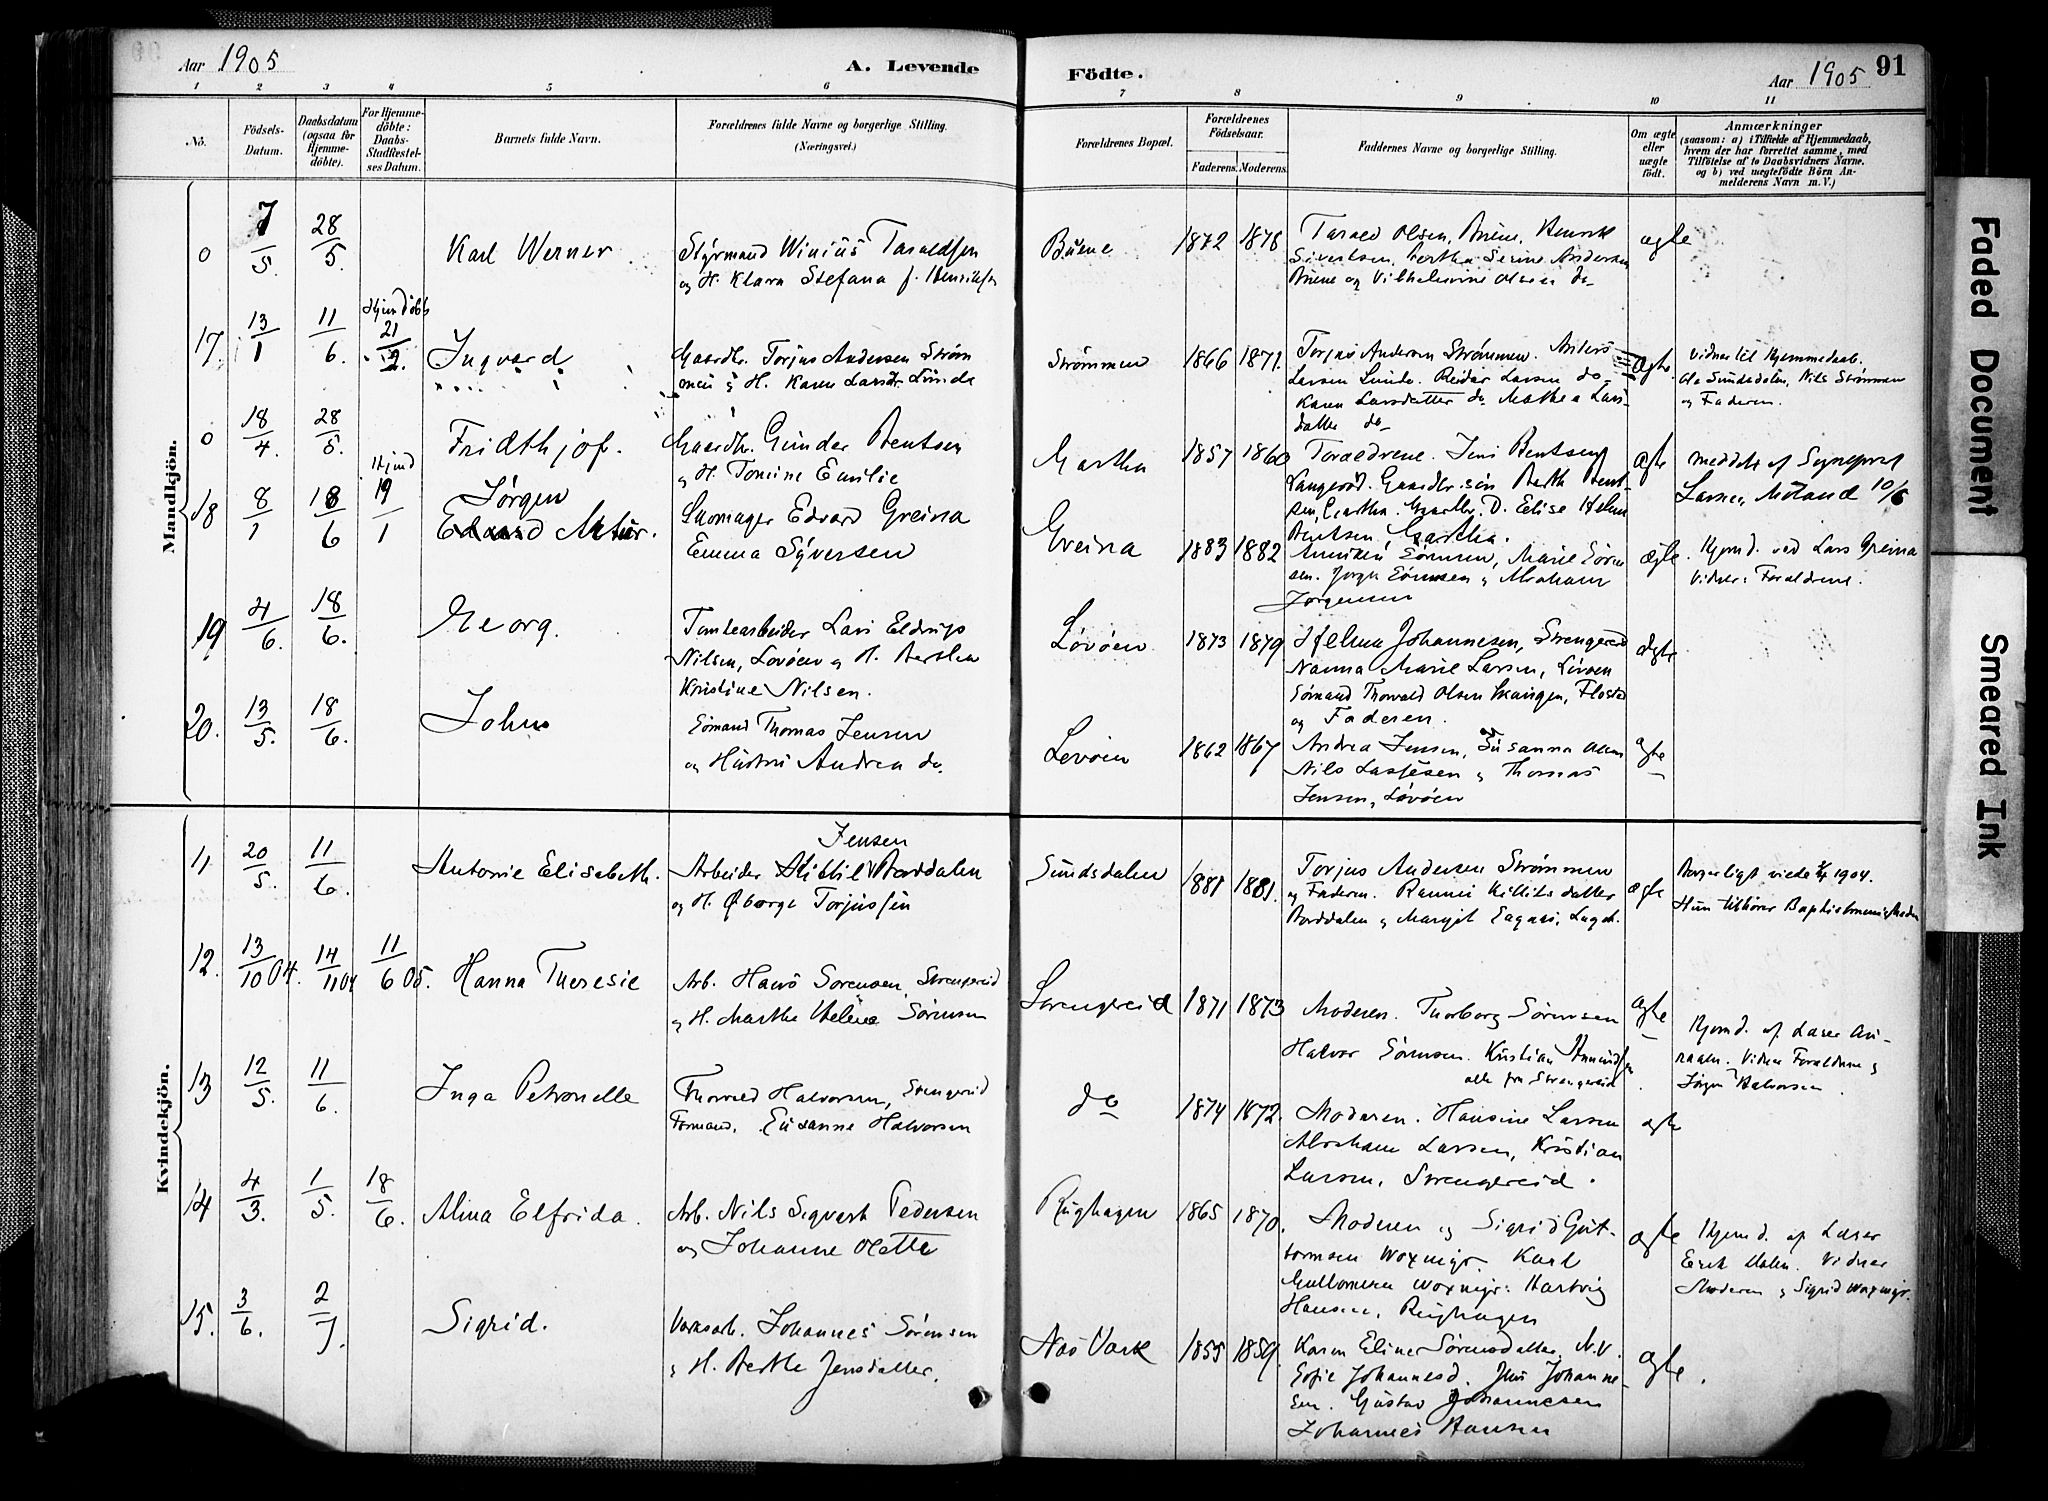 Aar 1905
A. Levende
Födte.
Aar 1905
91
1 2 3 4 5 6 7 8 9 10 11
No.
Födsels-
Datum.
Daabsdatum
(ogsaa for
Hjemme-
döbte).
For Hjemme-
döbte:
Daabs-
Stadfæstel-
ses Datum.
Barnets fulde Navn.
Forældrenes fulde Navne og borgerlige Stilling.
(Næringsvei.)
Forældrenes Bopæl.
Forældrenes
Födselsaar.
Faderens. Moderens.
Faddernes Navne og borgerlige Stilling.
Om ægte
eller
uægte
født.
Anmærkninger
(saasom: a) i Tilfælde af Hjemmedaab,
hvem der har forrettet samme, med
Tilföielse af to Daabsvidners Navne.
og b) ved uægtefödte Börn An-
melderens Navn m. V.)
Mandkjön.
0 7/5. 28/5. Karl Werner
Styrmand Winius Taraldsen
og H. Klara Stefana f. Henriksen
Buene 1872 1878
Tarald Olsen, Buene, Henrik
Sivertsen, Bertha Serine Andersen
Buene og Vilhelmine Olsen do
ægte
17. 13/1 11/6. Hjemdøbt 21/2. Ingvard
Gaardbr. Torjus Andersen Strøm
men g H. Karen Larsdr. Lunde
Strømmen 1866 1871.
Torjus Andersen Strømmen. Anders
Larsen Lunde. Reidar Larsen do
Karen Larsdatter do Mathea Lars-
datter do
ægte.
Vidner til Hjemmedaab.
Ola Sundsdalen, Nils Strømmen
og Faderen.
0 18/4. 28/5. Fridthjof.
Gaardbr. Gunder Bentsen
og H. Tomine Emilie
Gartha 1857 1860
Forældrene. Jens Bentsen
Langerød. Gaardbr. søn Berth Bent-
sen, Gartha. Gaardbr. D. Elise Helene
Bentsen Gartha.
ægte
Meddelt af Sogneprest
Larsen, Moland 10/6
18 8/1 18/6 Hjemd 19/1 Jørgen
Edvard Artur.
Skomager Edvard Greina
Emma Syversen
Greina 1883 1882
Sørensen, Marie Søren
sen. Jørgen Sørensen g Abraham
Jørgensen
ægte.
Hjemd. ved Lars Greina
Vidner: Forældrene.
19 4/6. 18/6. Georg.
Tomtearbeider Lars Eldrup
Nilsen, Løvøen g H. Bertha
Kristine Nilsen.
Løvøen 1873 1879
Helena Johannesen, Strengereid
Nanna Marie Larsen, Løvøen
Sømand Thorvald Olsen Skaugen, Flosta
og Faderen.
ægte
20. 13/5. 18/6. John
Sømand Thomas Jensen
og Hustru Andrea do.
Løvøen 1862 1867
Andrea Jensen, Susanna Olsen
Nils Lassesen g Thomas
Jensen, Løvøen
ægte
Kvindekjön.
11 20/5. 11/6. Antonie Elisabeth.
Jensen
Arbeider Kittil Borddalen
og H. Øborge Torjussen
Sundsdalen 1881 1881.
Torjus Andersen Strømmen
og Faderen. Rannei Kittilsdatter
Borddalen g Margit
ægte
Borgerligt viede 1904.
Hun tilhører Baptistmenigheden
12. 13/10 04. 14/11 04 11/6 05. Hanna Theresie
Arb. Hans Sørensen, Strengereid
g H. Marthe Helene Sørensen
Strengereid 1871 1873
Moderen. Thorborg Sørensen
Halvor Sørensen. Kristian Amundsen
alle fra Strengereid
ægte
Hjemd. af Lærer Au-
Vidner Forældrene g
Jørgen Halvorsen
13 12/5. 11/6. Inga Petronelle
Thorvald Halvorsen, Strengereid
Formand. Susanne Halvorsen
do 1874 1872.
Moderen. Hansine Larsen
Abraham Larsen, Kristian
Larsen, Strengereid.
ægte
14 4/3. 1/5. 18/6. Alma Elfrida.
Arb. Nils Sigvart Pedersen
og Johanne Olette
Rughagen 1865 1870.
Moderen og Sigrid Gut-
tormsen Woxmyr. Karl
Guttormsen Woxmyr. Hartvig
Hansen, Rughagen
ægte
Hjemd. af Lærer
Erik Vidner
Moderen g Sigrid Woxmyr.
15. 3/6. 2/7. Sigrid.
Værksarb. Johannes Sørensen
g H. Berthe Jensdatter.
Næs Værk 1855 1859.
Karen Eline Sørensdatter, N.V.
Sofie Johannesd. Jens Johanne-
sen. Gustav Johannesen
Johannes Hansen
ægte.
Faded Document
Smeared Ink